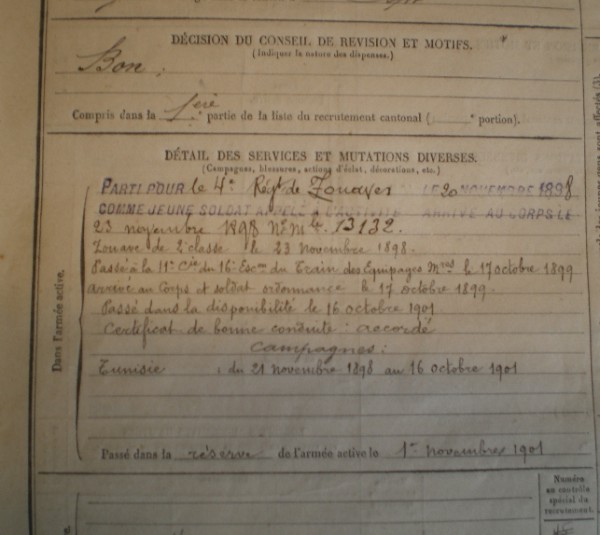 DÉCISION DU CONSEIL DE REVISION ET MOTIFS.
(Indiquer la nature des dispenses.)
Bon :
Compris dans la 1ère partie de la liste du recrutement cantonal ( e portion).
DÉTAIL DES SERVICES ET MUTATIONS DIVERSES.
(Campagnes, blessures, actions d'éclat, décorations, etc.)
PARTI POUR le 4e Régt de Zouaves LE 20 NOVEMBRE 1898
COMME JEUNE SOLDAT APPELÉ À L'ACTIVITÉ ARRIVÉ AU CORPS LE
23 novembre 1898 No Mle 13132.
Zouave de 2e classe le 23 novembre 1898.
Passé à la 11e Cie du 16e Escon du Train des Equipages Mres le 17 octobre 1899
arrivé au Corps et soldat ordonnance le 17 octobre 1899.
Passé dans la disponibilité le 16 octobre 1901
Certificat de bonne conduite : accordé
Campagnes :
Tunisie : du 21 novembre 1898 au 16 octobre 1901
Passé dans la réserve de l'armée active le 1er novembre 1901
Dans l'armée active.
Numéro
au contrôle
spécial du
recrutement.